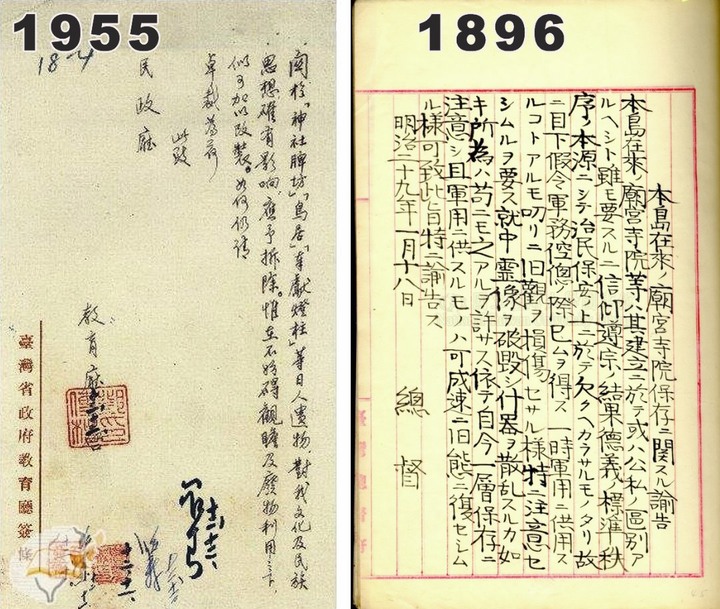 1955
關於「神社牌坊」「鳥居」「奉獻燈柱」等日人遺物，對我文化及民族
思想確有影響，應予拆除。惟在不妨碍觀瞻及廢物利用之下，
似可加以改裝。如何仍請
卓裁為荷
此致
民政廳
教育廳
臺灣省政府教育廳簽條
1896
本島在來ノ廟宮寺院保存ニ関スル諭告
本島在來ノ廟宮寺院等ハ其建立ニ於テ或ハ公私ノ區別ア
ルヘシト雖モ要スルニ信仰遵宗ノ結果德義ノ標準秩
序ノ本源ニシテ治民保安ノ上ニ於テ欠クヘカラサルモノタリ故
ニ目下假令軍務倥偬ノ際已ムヲ得ス一時軍用ニ供用ス
ルコトアルモ叨リニ旧觀ヲ損傷セサル様特ニ注意セ
シムルヲ要ス就中霊像ヲ破毀シ什器ヲ散乱スルカ如
キ所為ハ苟ニモ之アルヲ許サス依テ自今一層保存ニ
注意シ且軍用ニ供スルモノハ可成速ニ旧態ニ復セシム
ル様可致此旨特ニ諭告ス
明治二十九年一月十八日
總督